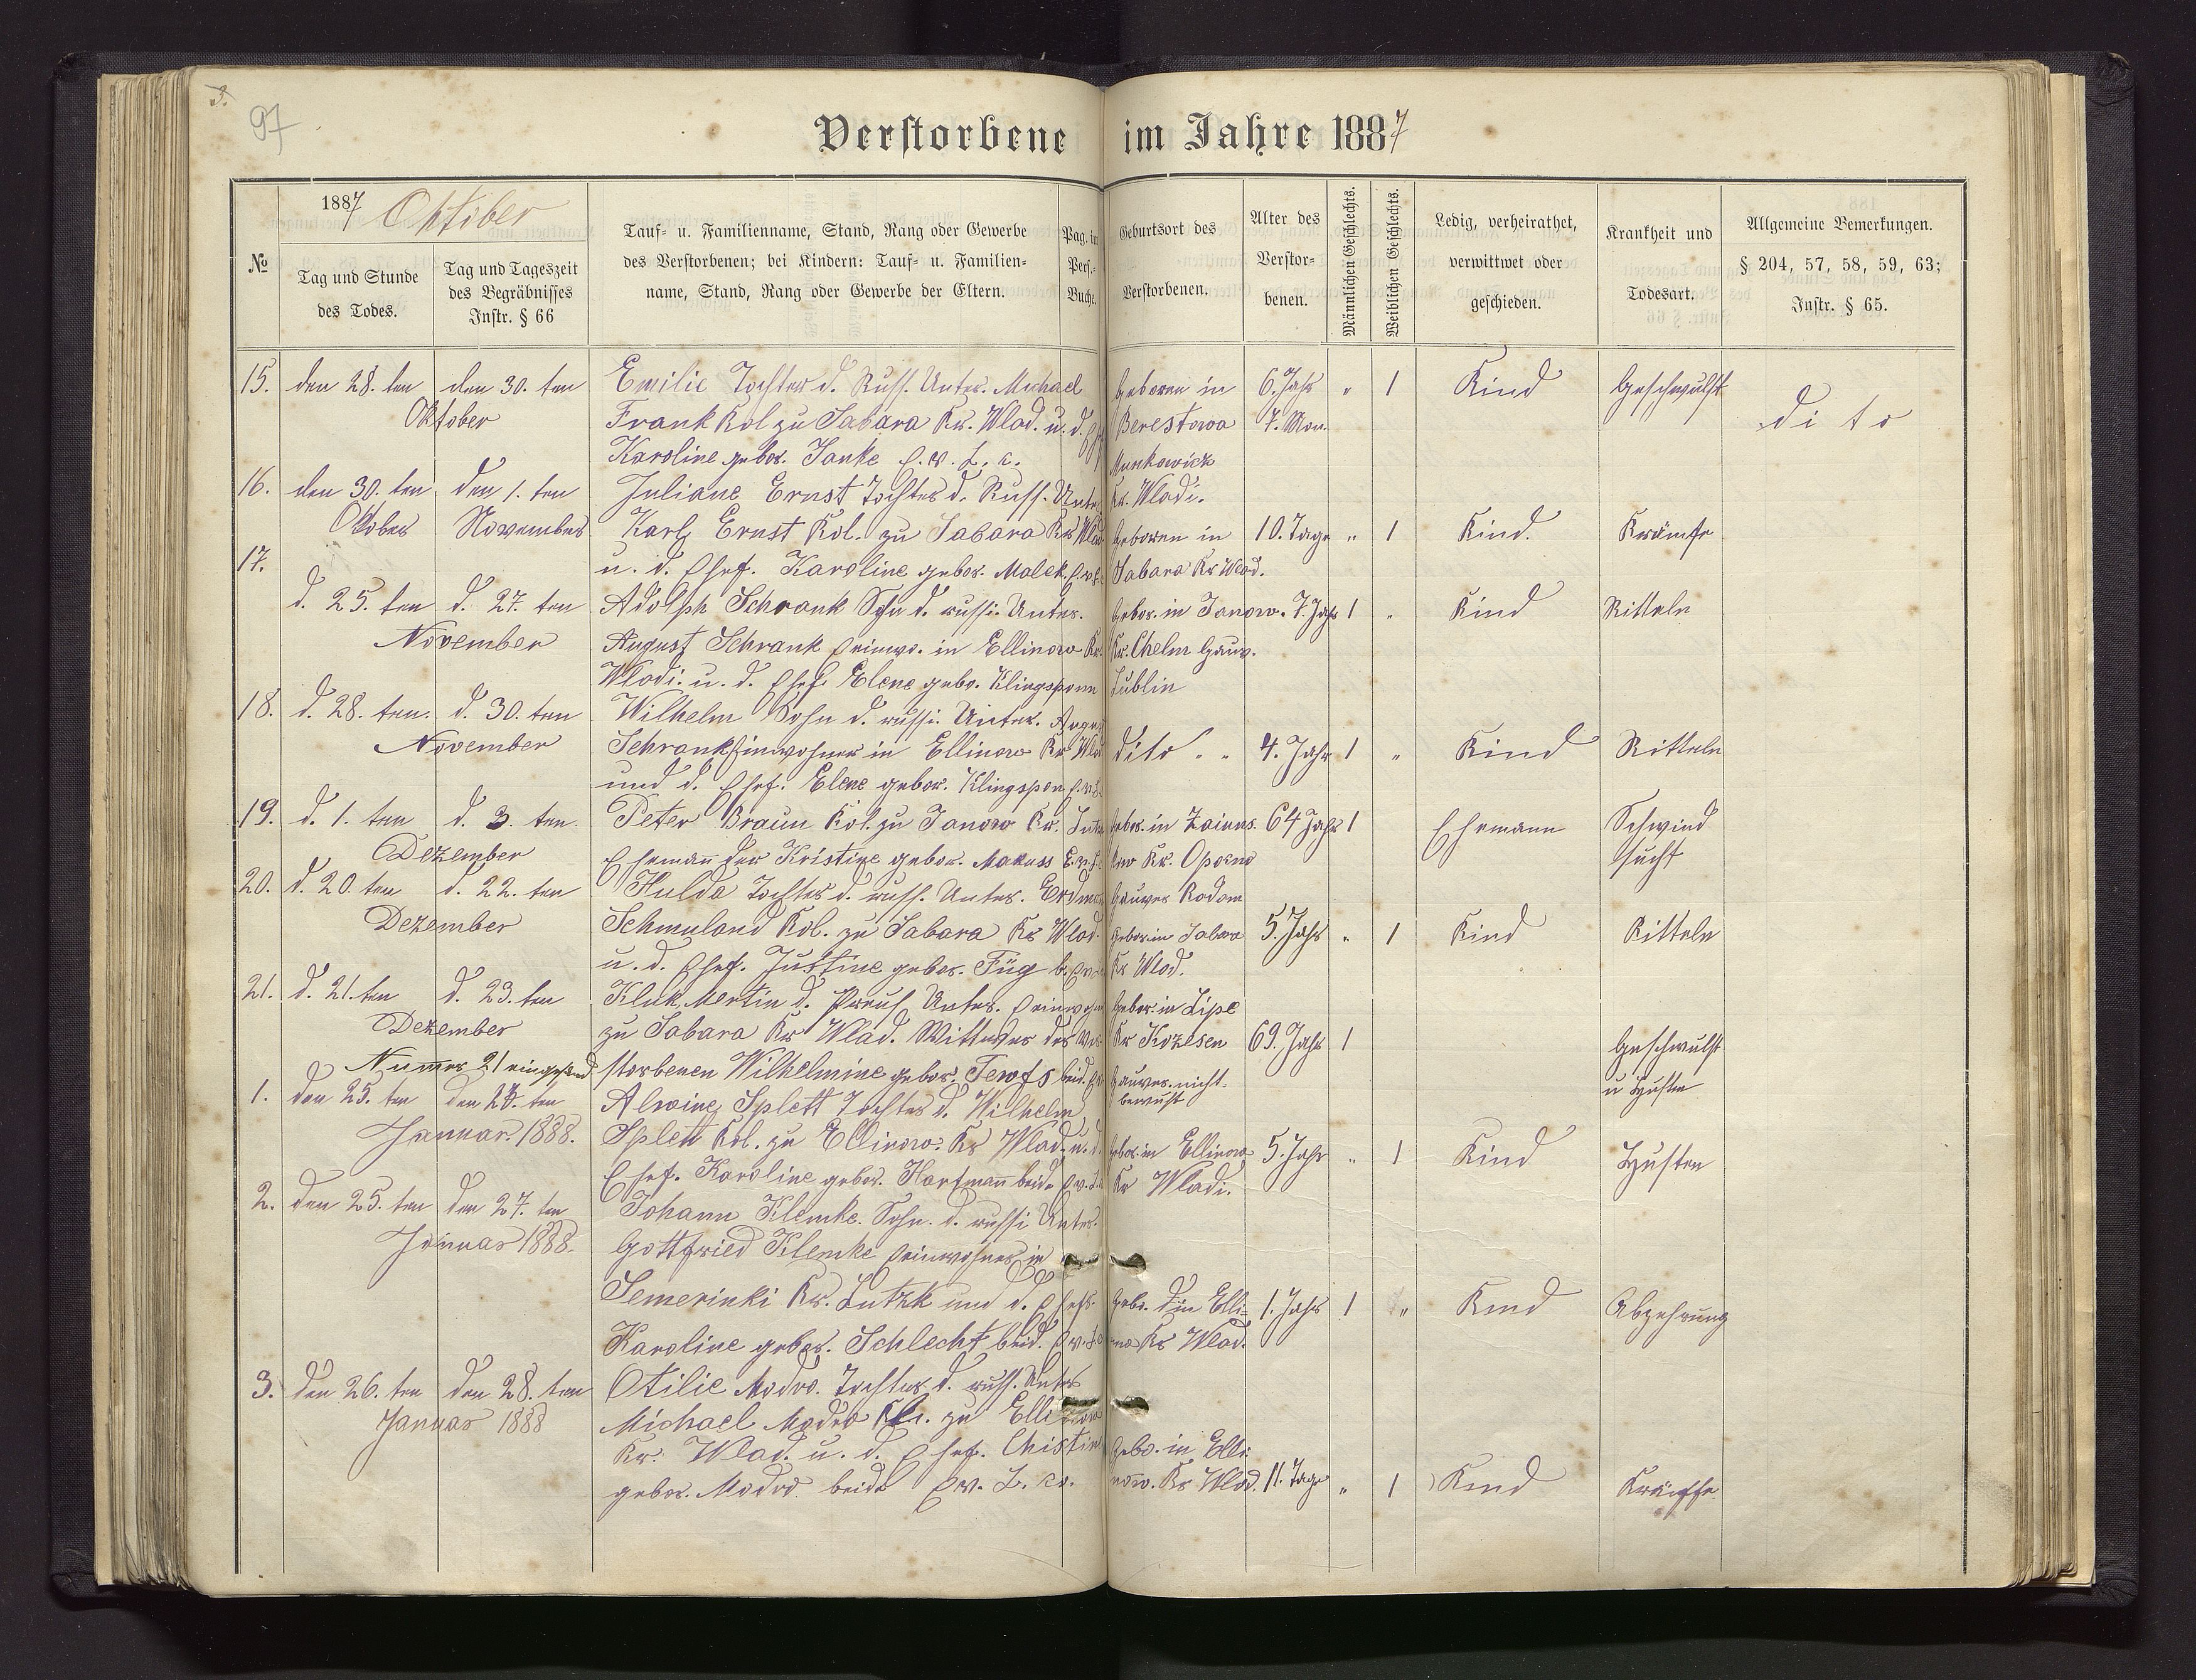 97
Verstorbene im Jahre 1887
№
1887 Oktober
Tag und Stunde
des Todes.
Tag und Tageszeit
des Begräbnisses
Instr. § 66
Tauf- u. Familienname, Stand, Rang oder Gewerbe
des Verstorbenen; bei Kindern: Tauf- u. Familien-
name, Stand, Rang oder Gewerbe der Eltern.
Pag. im
Pers.-
Buche.
Geburtsort des
Verstorbenen.
Alter des
Verstor-
benen.
Männlichen Geschlechts.
Weiblichen Geschlechts.
Ledig, verheirathet,
verwittwet oder
geschieden.
Krankheit und
Todesart.
Allgemeine Bemerkungen.
§ 204, 57, 58, 59, 63;
Instr. § 65.
15. den 28. ten den 30. ten Emilie Tochter d. Russ. Unter. Michael Geboren in 6. Jahr " 1 Kind Geschwulst
Oktober Frank Kol zu Sabara Kr. Wlad. u. d. Berestowa 7. Mon. dito
Karoline gebor. Janke
16. den 30. ten den 1. ten Juliane Ernst Tochter d. Russ. Kr. Wladi.
Oktober November Karl Ernst Kol. zu Sabara Kr Geboren in 10. Tage " 1 Kind. Krämpfe
17. u. d. Ehef. Karoline gebor. Malek Sabara Kr Wlad.
d. 25. ten d. 27. ten Adolph Schrank Sohn d. russi. Unter. Gebor. in Janow. 7. Jahr 1 " Kind Ritteln
November August Schrank Einwo. in Ellinow Kr. Kr. Chelm Gouv.
Wladi. u. d. Ehef. Elene gebo. Klingsporn Lublin
18. d. 28. ten. d. 30. ten Wilhelm Sohn d. russi. Unter.
November Schrank Einwohner in Ellinow Kr dito " " 4. Jahr 1 " Kind Ritteln
und d. Ehef. Elene gebor. Klingspon
19. d. 1. ten d. 3. ten. Peter Braun Kol. zu Janow Kr. gebor. in 64 Jahr 1 Ehemann Schwind
Dezember Ehemann der Kristine gebor. Makuss Kr. Opocno sucht
20. d. 20. ten d. 22. ten Hulda Tochter d. russ. Unter. Gouver Radom
Dezember Schmuland Kol. zu Sabara Kr Wlad. Gebor. in Sabara 5. Jahr " 1 Kind Ritteln
u. d. Ehef. Justine gebor. Füg Kr Wlod.
21. d. 21. ten d. 23. ten Kluk Mertin d. Preuss. Unter. Gebor. in Lipe
Dezember zu Sabara Kr Wlad. Wittwer der Kr Kozlsen 69. Jahr 1 Geschwulst
Numer 21 storbenen Wilhelmine gebor. Gouver. nicht u Husten
bewust
1. den 25. ten den 27. ten Alwine Splett Tochter d. Wilhelm
Januar. 1888. Splett Kol. zu Ellinow. Kr Wlad. u. d. gebor. in Ellinow 5. Jahr " 1 Kind Husten
Ehef. Karoline gebor. Hartmann beide Kr Wladi.
2. den 25. ten den 27. ten Johann Klemke. Sohn. d. russi Unter.
Januar 1888. Gottfried Klemke Einwohner in
Semerinki Kr. Lutzk und d. Ehef. Gebo. in Elli= 1. Jahr 1 " Kind Abzehrung
Karoline gebor. Schlecht beid. Kr Wlad.
3. den 26. ten den 28. ten Otilie Modro. Tochter d. russ. Unter
Januar 1888 Michael Modro zu Ellinow
Kr. Wlad. u. d. Ehef. Chistin Gebo. in Elli
gebor. Modro beide Ev. L. now. Kr Wlad. 11. Tage " 1 Kind Krämpfe